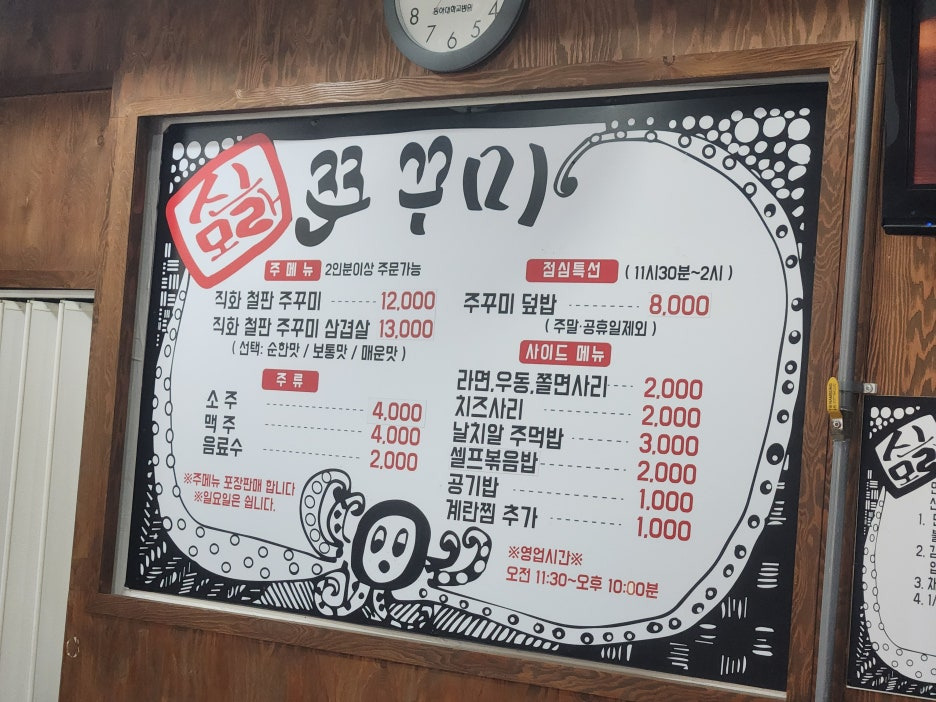 동아대학교병원
8 7 6 5 4
심
모락
쭈꾸미
주 메 뉴 2인분이상 주문가능
직화 철판 주꾸미 12,000
직화 철판 주꾸미 삼겹살 13,000
( 선택: 순한맛 / 보통맛 / 매운맛 )
주 류
소 주 4,000
맥 주 4,000
음료수 2,000
※주메뉴 포장판매 합니다
※일요일은 쉽니다.
점심특선 ( 11시30분~2시 )
주꾸미 덮밥 8,000
( 주말·공휴일제외 )
사이드 메뉴
라면,우동,쫄면사리 2,000
치즈사리 2,000
날치알 주먹밥 3,000
셀프볶음밥 2,000
공기밥 1,000
계란찜 추가 1,000
※영업시간※
오전 11:30~오후 10:00분
심
모
1.
2.
3.
4. 1/